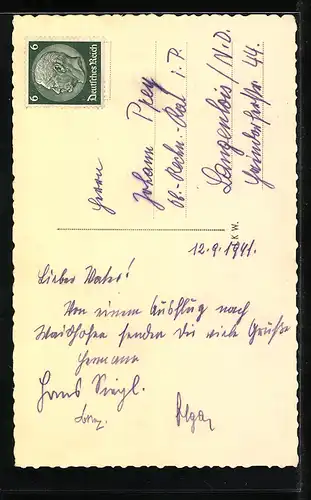 6 6
Deutsches Reich
Herrn
Johann Prey
Ob.-Rechn.-Rat i. P.
Langenlois/N.D.
44.
K W.
12.9.1941.
Lieber Vater!
Von einem Ausflug nach
Waidhofen senden Dir viele Grüße
Hermann
Hans Siegl.
Olga